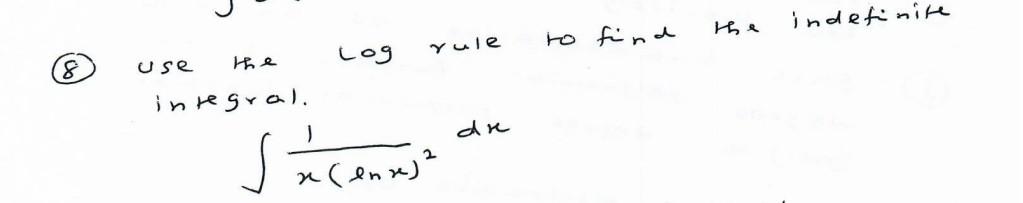 ⑧ use the Log rule to find the indefinite
integral.
∫ 1/(x(ln x)²) dx